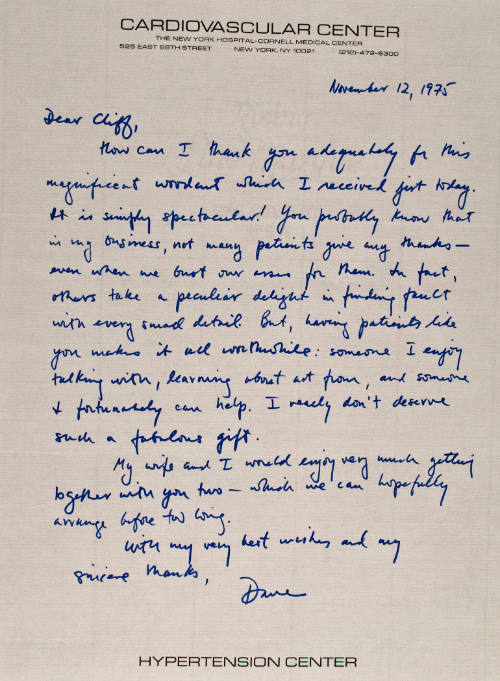 CARDIOVASCULAR CENTER
THE NEW YORK HOSPITAL-CORNELL MEDICAL CENTER
525 EAST 68TH STREET NEW YORK, NY 10021 (212)-472-5300
November 12, 1975
Dear Cliff,
How can I thank you adequately for this
magnificent woodcut which I received just today.
It is simply spectacular! You probably know that
in my business, not many patients give any thanks—
even when we bust our asses for them. In fact,
others take a peculiar delight in finding fault
with every small detail. But, having patients like
you makes it all worthwhile: someone I enjoy
talking with, learning about art from, and someone
I fortunately can help. I really don't deserve
such a fabulous gift.
My wife and I would enjoy very much getting
together with you two — which we can hopefully
arrange before too long.
With my very best wishes and my
sincere thanks,
Dave
HYPERTENSION CENTER